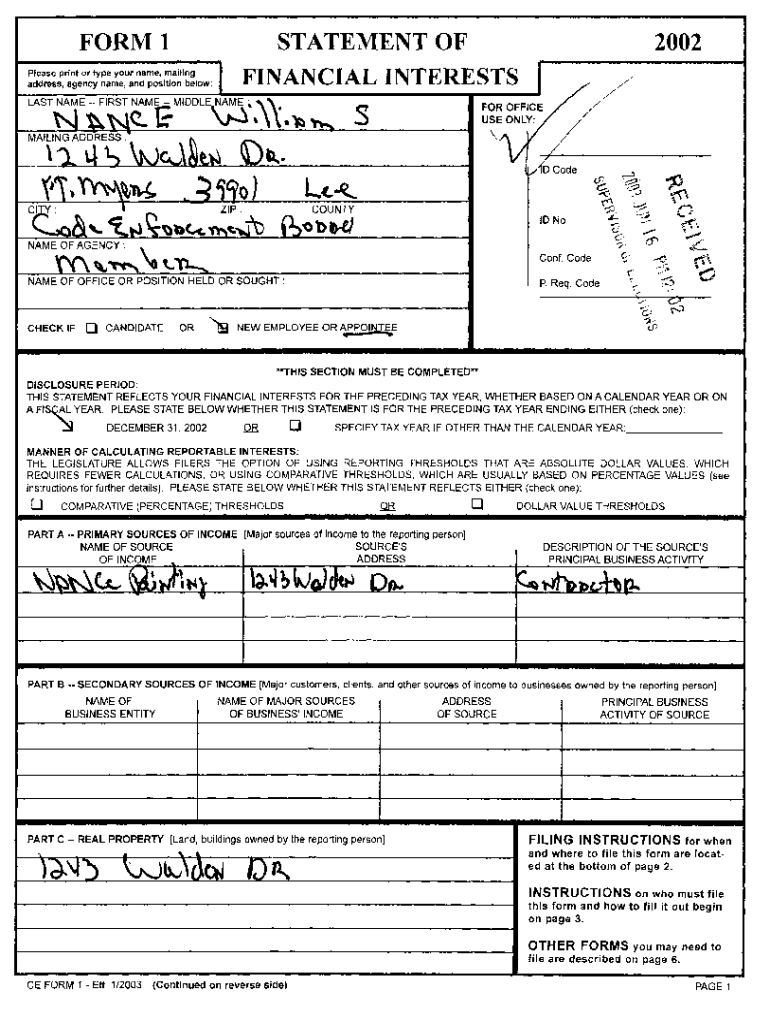 FORM 1 STATEMENT OF 2002
FINANCIAL INTERESTS
Please print or type your name, mailing
address, agency name, and position below:
LAST NAME -- FIRST NAME -- MIDDLE NAME :
NANCE William S
MAILING ADDRESS :
1243 Walden Dr.
FT. Myers 33901 Lee
CITY : ZIP : COUNTY :
Code Enforcement Board
NAME OF AGENCY :
Member
NAME OF OFFICE OR POSITION HELD OR SOUGHT :
CHECK IF CANDIDATE OR NEW EMPLOYEE OR APPOINTEE
FOR OFFICE
USE ONLY:
ID Code
ID No
Conf. Code
P. Req. Code
RECEIVED
2003 JUN 16 PM 12: 02
SUPERVISOR OF ELECTIONS
**THIS SECTION MUST BE COMPLETED**
DISCLOSURE PERIOD:
THIS STATEMENT REFLECTS YOUR FINANCIAL INTERESTS FOR THE PRECEDING TAX YEAR, WHETHER BASED ON A CALENDAR YEAR OR ON
A FISCAL YEAR. PLEASE STATE BELOW WHETHER THIS STATEMENT IS FOR THE PRECEDING TAX YEAR ENDING EITHER (check one):
DECEMBER 31, 2002 OR SPECIFY TAX YEAR IF OTHER THAN THE CALENDAR YEAR:
MANNER OF CALCULATING REPORTABLE INTERESTS:
THE LEGISLATURE ALLOWS FILERS THE OPTION OF USING REPORTING THRESHOLDS THAT ARE ABSOLUTE DOLLAR VALUES, WHICH
REQUIRES FEWER CALCULATIONS, OR USING COMPARATIVE THRESHOLDS, WHICH ARE USUALLY BASED ON PERCENTAGE VALUES (see
instructions for further details). PLEASE STATE BELOW WHETHER THIS STATEMENT REFLECTS EITHER (check one):
COMPARATIVE (PERCENTAGE) THRESHOLDS OR DOLLAR VALUE THRESHOLDS
PART A -- PRIMARY SOURCES OF INCOME [Major sources of income to the reporting person]
NAME OF SOURCE SOURCE'S DESCRIPTION OF THE SOURCE'S
OF INCOME ADDRESS PRINCIPAL BUSINESS ACTIVITY
NANCe Painting 1243 Walden Dr Contractor
PART B -- SECONDARY SOURCES OF INCOME [Major customers, clients, and other sources of income to businesses owned by the reporting person]
NAME OF NAME OF MAJOR SOURCES ADDRESS PRINCIPAL BUSINESS
BUSINESS ENTITY OF BUSINESS' INCOME OF SOURCE ACTIVITY OF SOURCE
PART C -- REAL PROPERTY [Land, buildings owned by the reporting person]
1243 Walden DR
FILING INSTRUCTIONS for when
and where to file this form are locat-
ed at the bottom of page 2.
INSTRUCTIONS on who must file
this form and how to fill it out begin
on page 3.
OTHER FORMS you may need to
file are described on page 6.
CE FORM 1 - Eff. 1/2003 (Continued on reverse side) PAGE 1